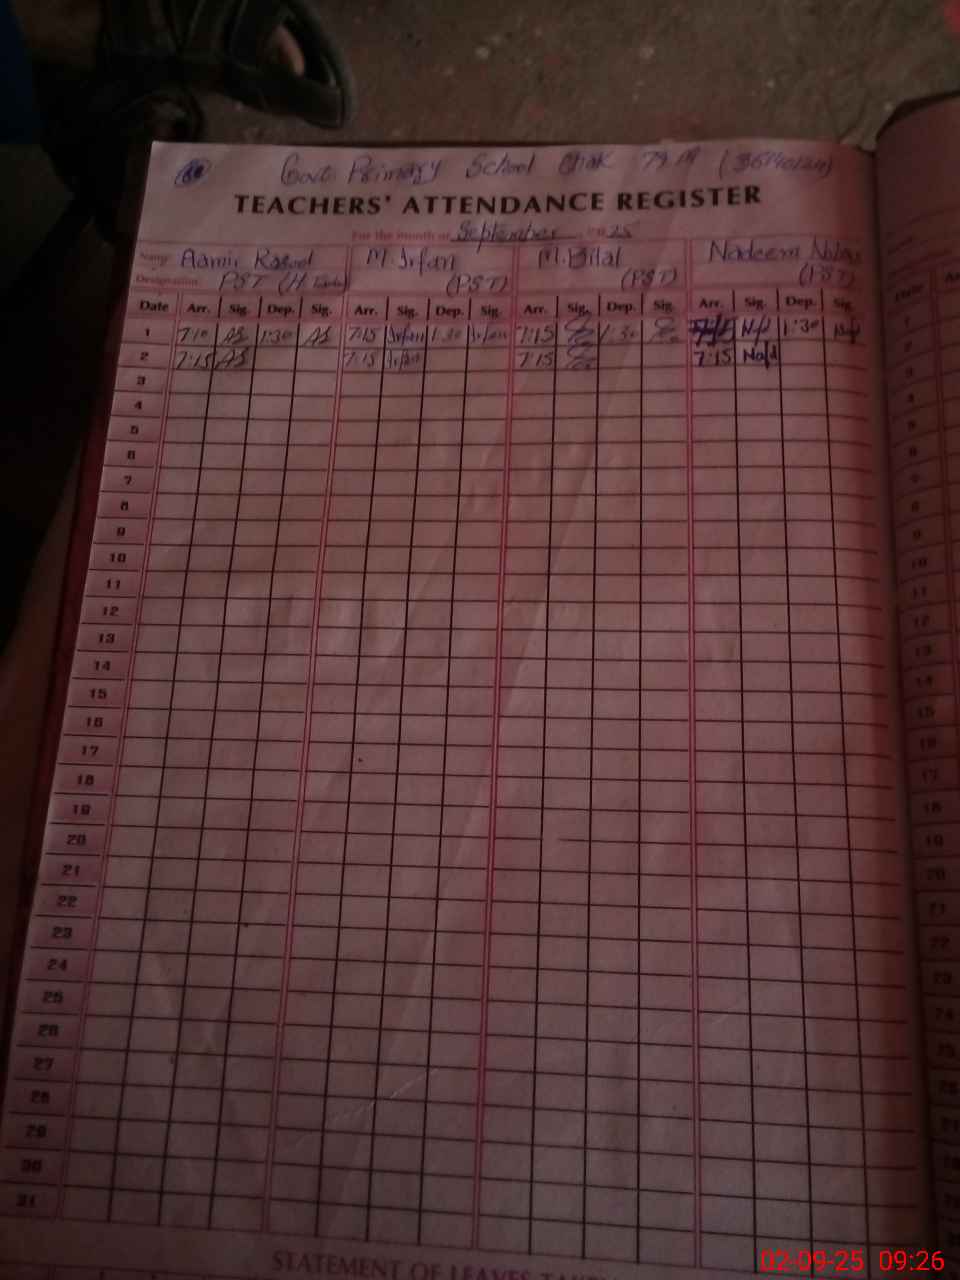 Govt Primary School Chak
TEACHERS' ATTENDANCE REGISTER
For the month of September 2025
Name Aamir Rasool M. Irfan M. Bilal Nadeem
Designation PST (H (PST) (PST) (PST)
Date Arr. Sig. Dep. Sig. Arr. Sig. Dep. Sig. Arr. Sig. Dep. Sig. Arr. Sig. Dep. Sig.
1 7:10 AS 1:30 AS 7:15 Irfan 1:30 Irfan 7:15 1:30 1:30
2 7:15 AS 7:15 Irfan 7:15 7:15
3
4
5
6
7
8
9
10
11
12
13
14
15
16
17
18
19
20
21
22
23
24
25
26
27
28
29
30
31
STATEMENT OF LEAVES
02-09-25 09:26